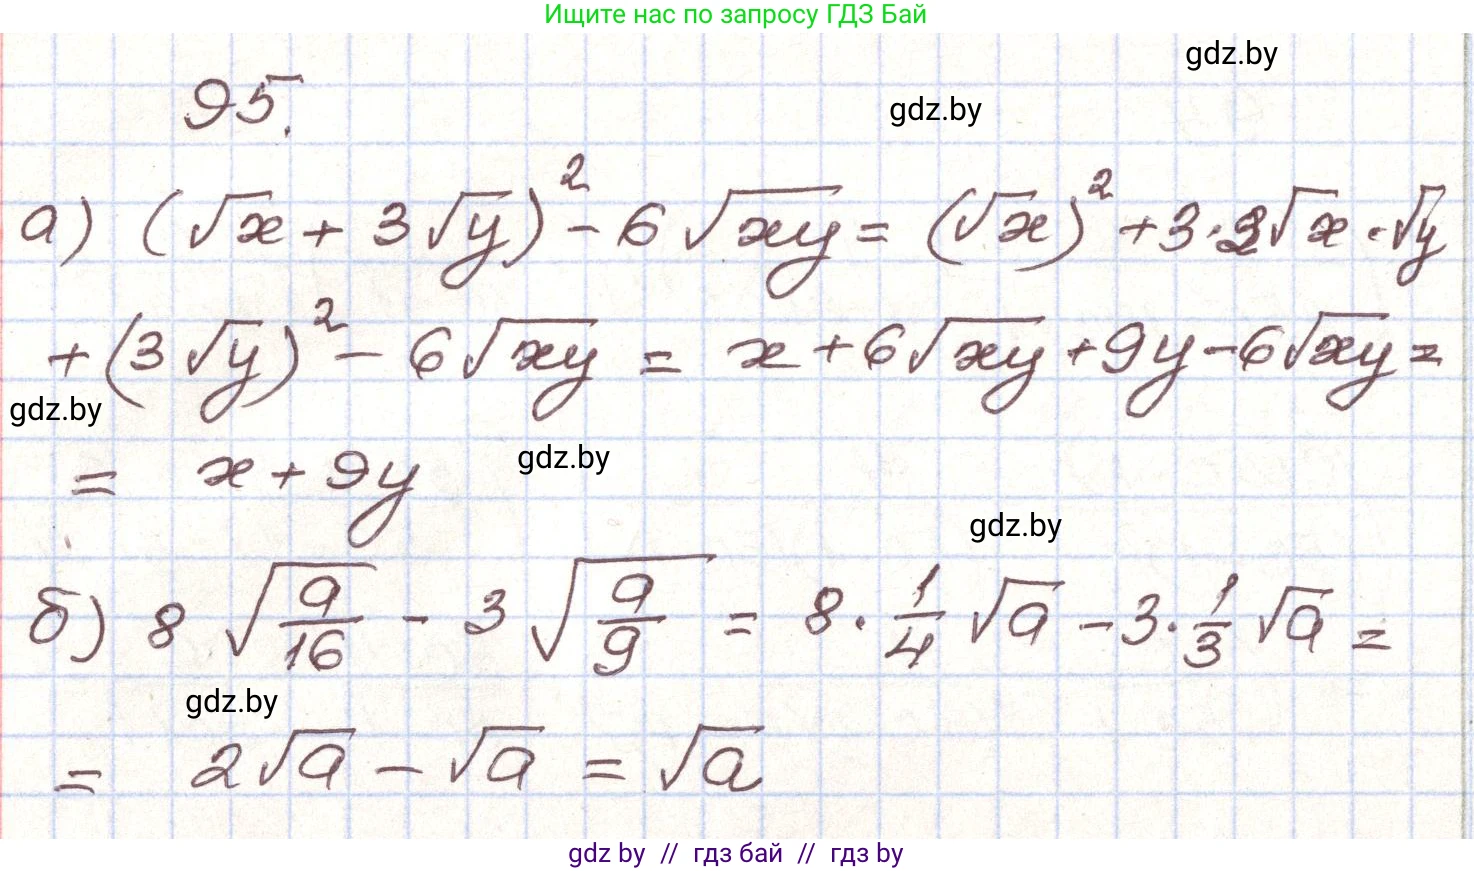 Ищите нас по запросу ГДЗ Бай
gdz.by
95.
gdz.by
а) (√x + 3√y)² - 6√xy = (√x)² + 3·2√x·√y
+ (3√y)² - 6√xy = x + 6√xy + 9y - 6√xy =
gdz.by
= x + 9y
gdz.by
gdz.by
б) 8√(a/16) - 3√(a/9) = 8·1/4√a - 3·1/3√a =
gdz.by
= 2√a - √a = √a
gdz by // гдз бай // гдз by